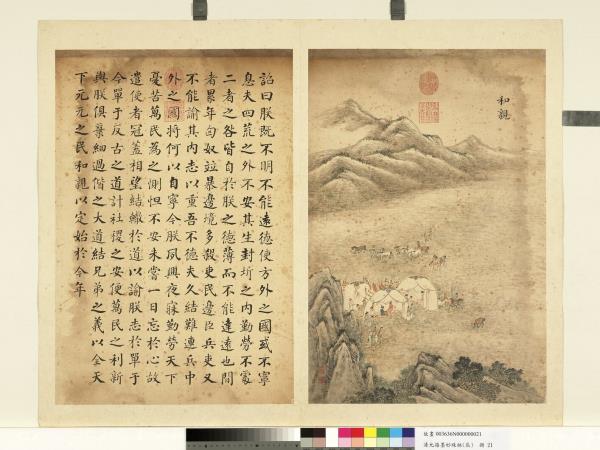 和親
詔曰朕既不明不能遠德使方外之國或不寧
息夫四荒之外不安其生封圻之內勤勞不處
二者之咎皆自於朕之德薄而不能達遠也間
者累年匈奴竝暴邊境多殺吏民邊臣兵吏又
不能諭其內志以重吾不德夫久結難連兵中
外之國將何以自寧今朕夙興夜寐勤勞天下
憂苦萬民為之惻怛不安未嘗一日忘於心故
遣使者冠蓋相望結轍於道以諭朕志於單于
今單于反古之道計社稷之安便萬民之利新
與朕俱棄細過偕之大道結兄弟之義以全天
下元元之民和親以定始於今年
故畫 003636N000000021
墨妙珠林 冊 21